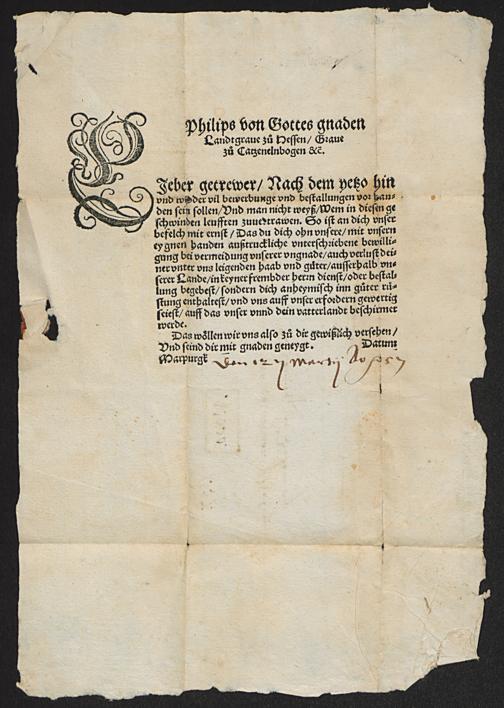 Philips von Gottes gnaden
Landtgraue zů Hessen / Graue
zů Catzenelnbogen &c.
Lieber getrewer / Nach dem yetzo hin
vnd wider vil bewerbunge vnd bestallungen vorhan-
den sein sollen / Vnd man nicht weyß / Wem in diesen ge
schwinden leufften zuuertrawen. So ist an dich vnser
befelch mit ernst / Das du dich ohn vnsere / mit vnsern
eygnen handen außtruckliche vnterschriebene bewilli-
gung bei vermeidung vnserer vngnade / auch verlust dei-
ner vnter vns leigenden haab vnd güter / ausserhalb vn-
serer Lande / in keyner frembder hern dienst / oder bestal-
lung begebest / sondern dich anheymisch inn güter rü-
stung enthaltest / vnd vns auff vnser erfordern gewertig
seiest / auff das vnser vnnd dein vatterlandt beschirmet
werde.
Das wöllen wir vns also zů dir gewißlich versehen /
Vnd seind dir mit gnaden geneygt. Datum
Marpurgk den Martij